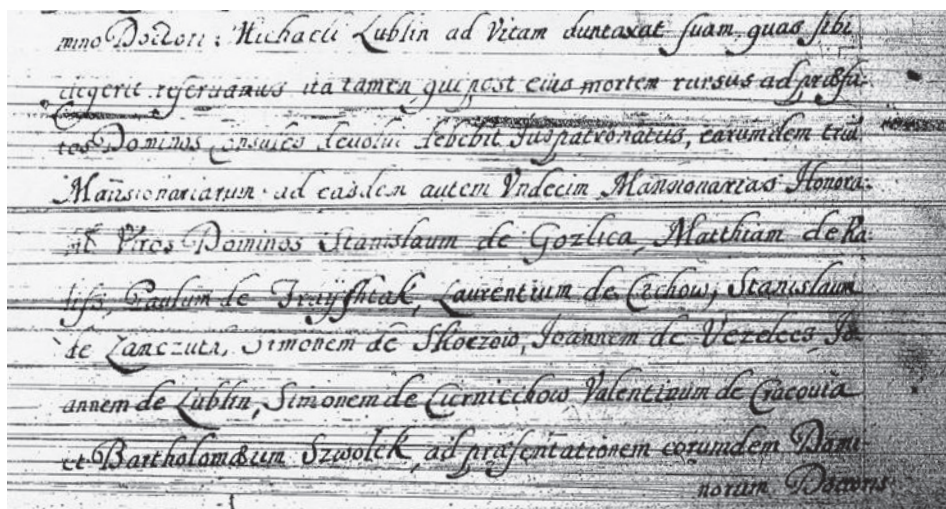 mino Doctori: Michaeli Lublin ad Vitam duntaxat suam, quas sibi
elegerit reservamus ita tamen, qui post eius mortem rursus ad præfa-
tos Dominos Consules devolui debebit Iuspatronatus, earumdem triū
Mansionariarum ad easdem autem Vndecim Mansionarias Honora:
Viros Dominos Stanislaum de Gozlica, Matthiam de Ka
lifs, Paulum de Frayshtak, Laurentium de Czchow, Stanislaum
de Lanczuth, Simonem de Skorzow, Joannem de Vezelecs, Jo-
annem de Lublin, Simonem de Czirnicchow Valentinum de Cracovia
et Bartholomæum Szwolek, ad præsentationem eorumdem Domi-
norum Doctoris